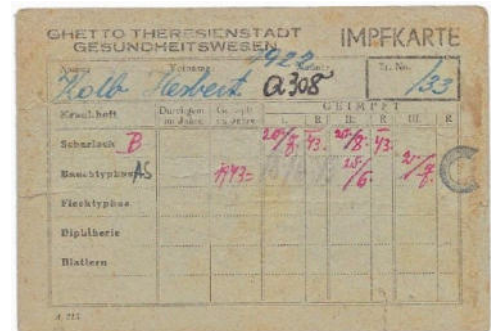 GHETTO THERESIENSTADT
GESUNDHEITSWESEN
IMPFKARTE
1922
Name: Vorname: Tr. No.
Kolb Herbert Q308 /33
Krankheit Durchgem. im Jahre Geimpft im Jahre GEIMPFT
I. R. II. R. III. R.
Scharlach B 43. 43.
Bauchtyphus AS 1943 25/6.
C
Flecktyphus
Diphtherie
Blattern